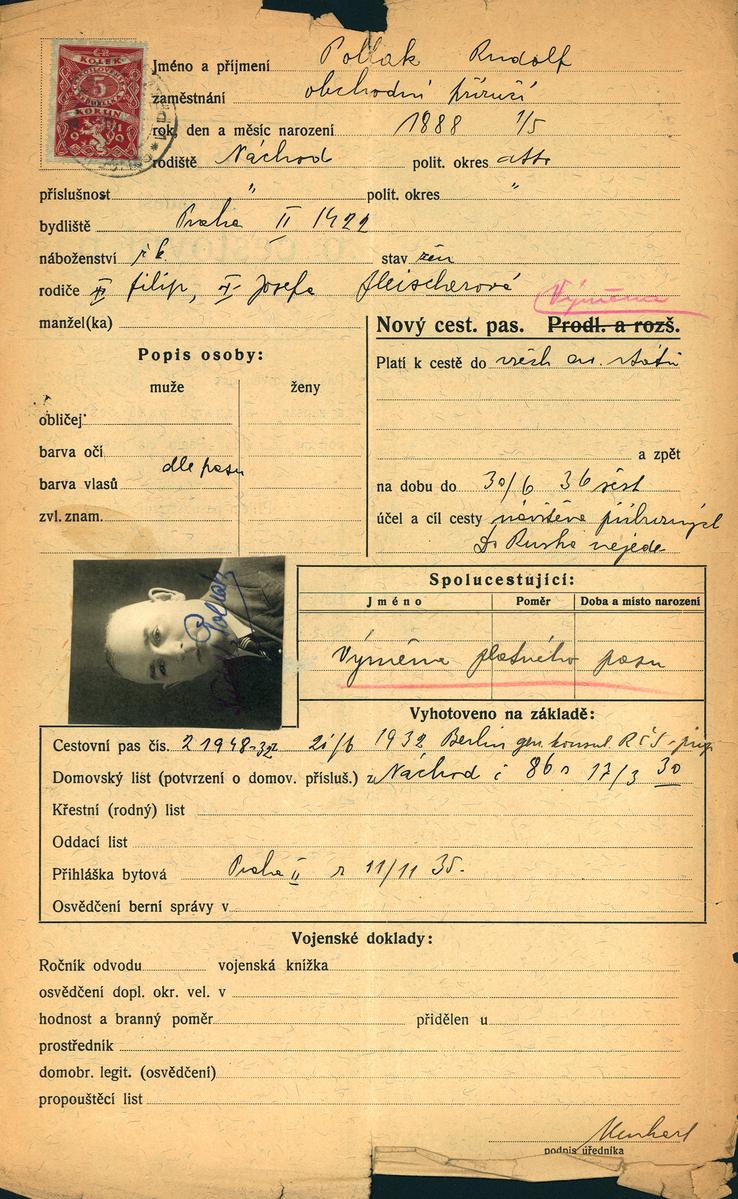 KOLEK
5
KORUN
Jméno a příjmení Pollak Rudolf
zaměstnání obchodní příručí
rok, den a měsíc narození 1888 1/5
rodiště Náchod polit. okres
příslušnost " polit. okres "
bydliště Praha II 1422
náboženství stav žen
rodiče Filip, Josefa Fleischerová
Výměna
manžel(ka)
Nový cest. pas. Prodl. a rozš.
Popis osoby:
muže ženy
obličej
barva očí
dle pasu
barva vlasů
zvl. znam.
Platí k cestě do všech států
a zpět
na dobu do 30/6 36
účel a cíl cesty návštěva příbuzných
Do Ruska nejede
Pollak
Spolucestující:
Jméno Poměr Doba a místo narození
Výměna platného pasu
Vyhotoveno na základě:
Cestovní pas čís. 1932 Berlin gen. konsul. RČS
Domovský list (potvrzení o domov. přísluš.) z Náchod č 86 17/3 30
Křestní (rodný) list
Oddací list
Přihláška bytová Praha II 11/11 35.
Osvědčení berní správy v
Vojenské doklady:
Ročník odvodu vojenská knížka
osvědčení dopl. okr. vel. v
hodnost a branný poměr přidělen u
prostředník
domobr. legit. (osvědčení)
propouštěcí list
podpis úředníka